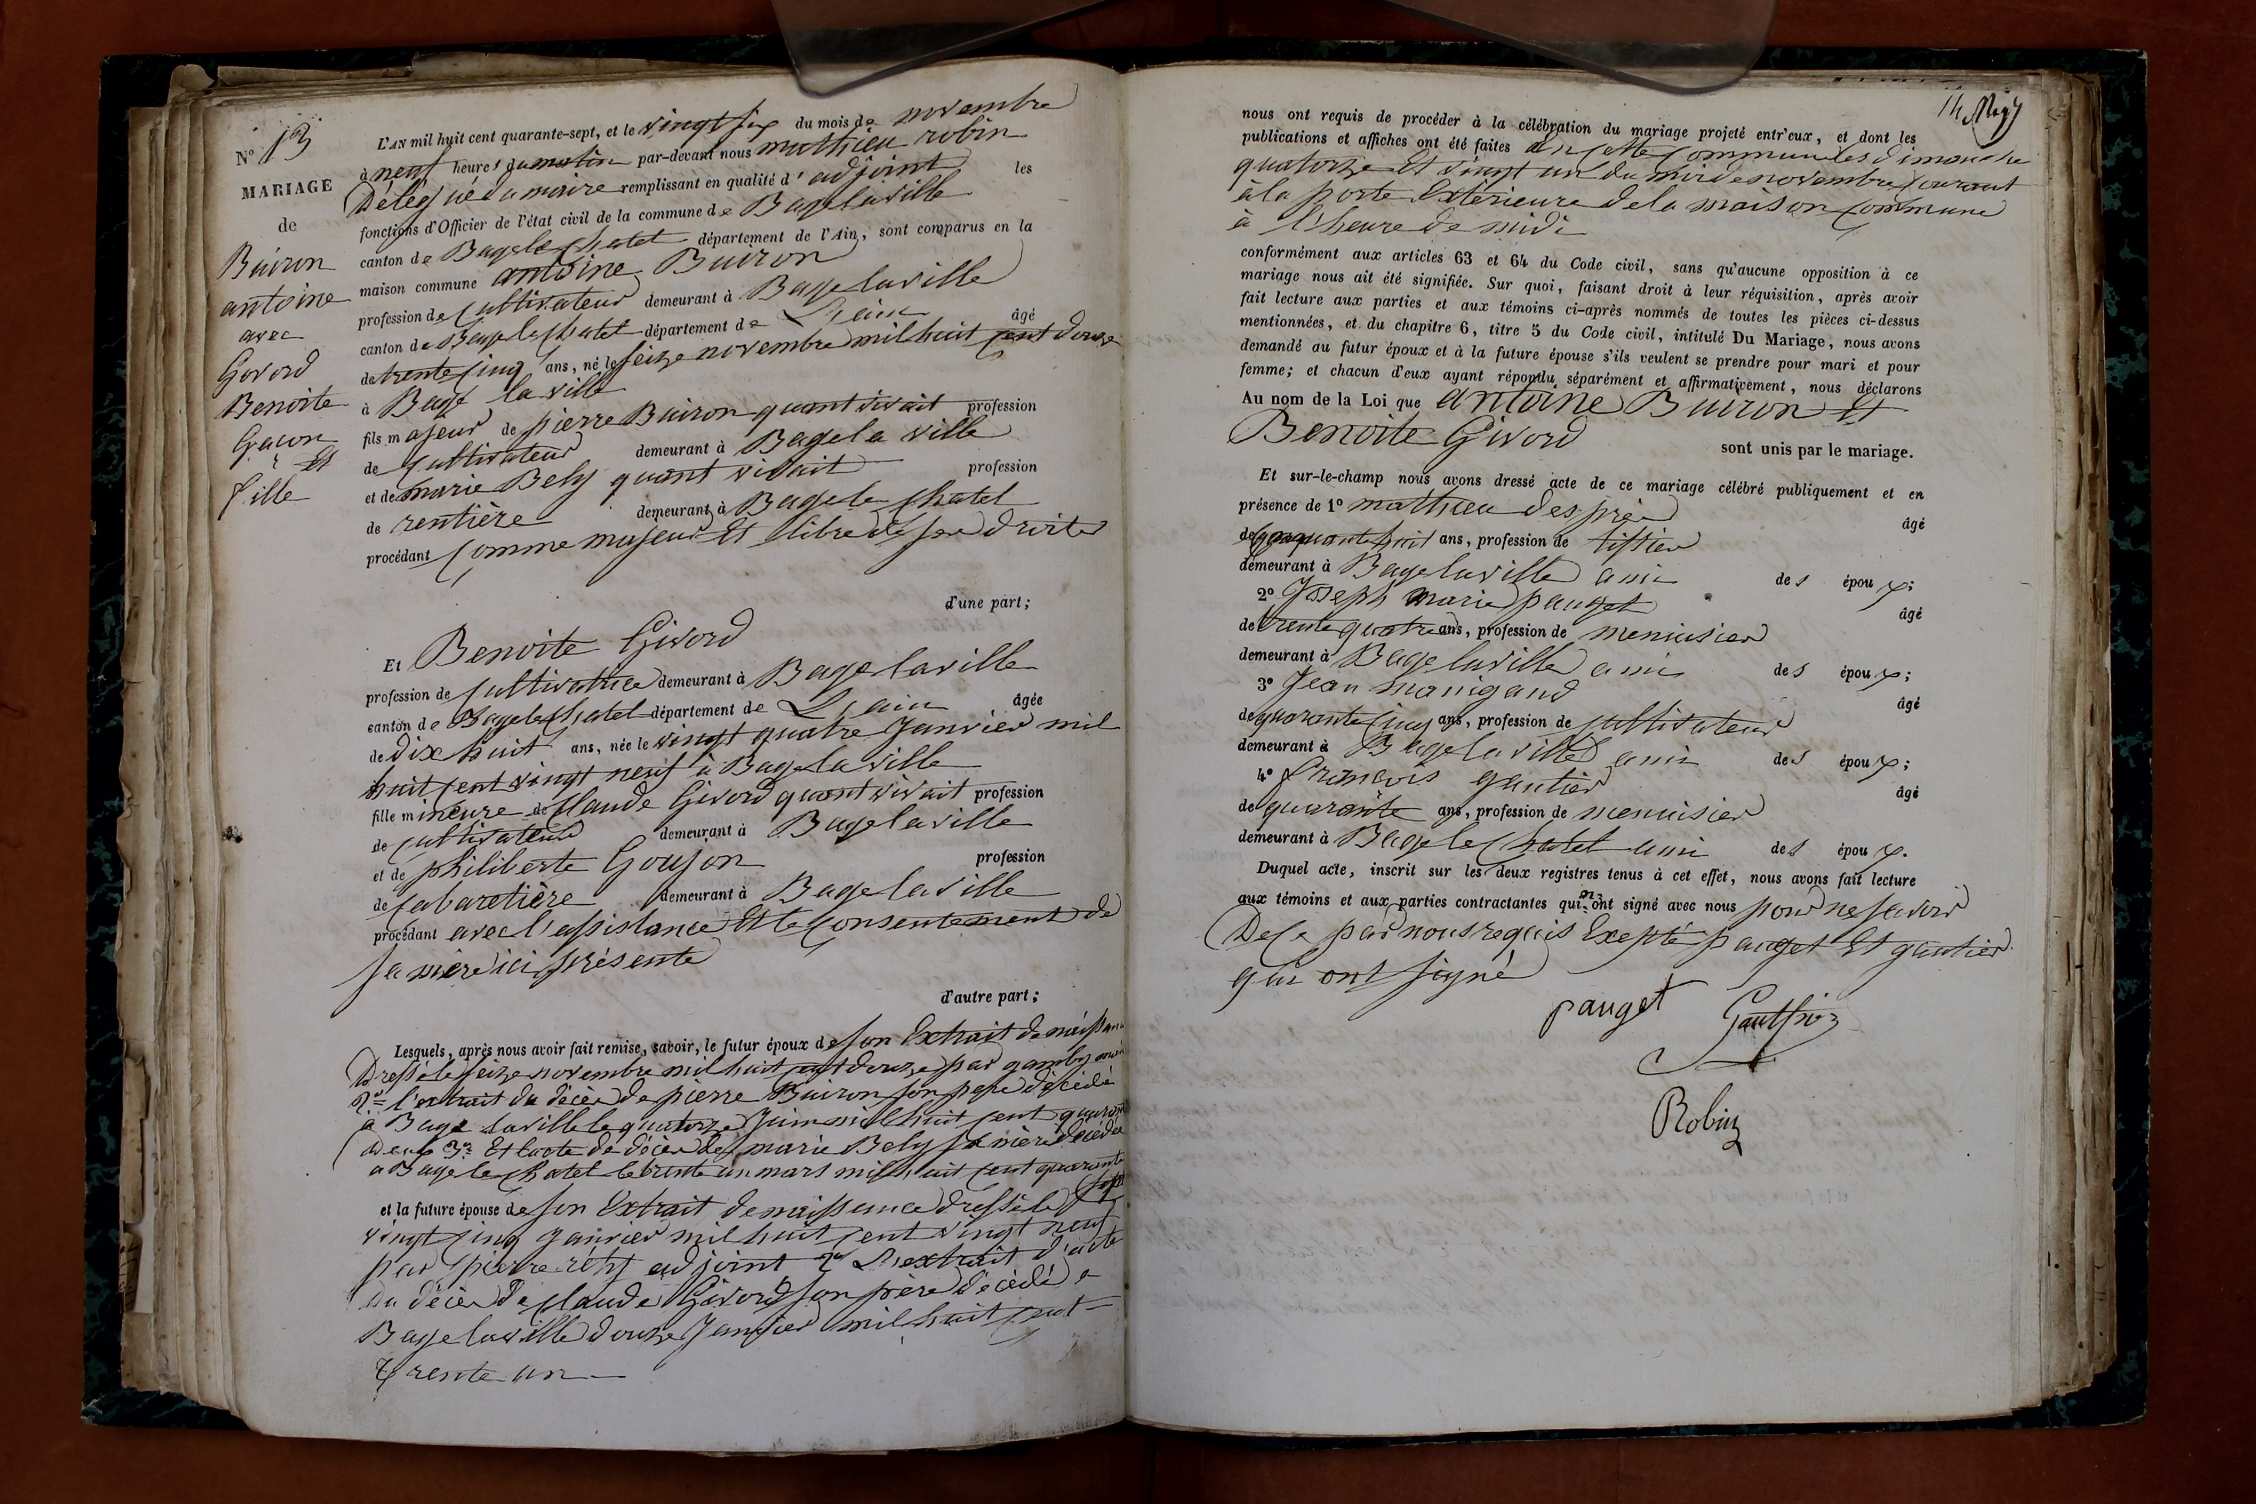 N° 13
MARIAGE
de
Buiron
antoine
avec
Givord
Benoite
Garçon
et
fille
L'AN mil huit cent quarante-sept, et le vingt six du mois de novembre
à neuf heures du matin par-devant nous mathieu robin
Délégué du maire remplissant en qualité d'adjoint les
fonctions d'Officier de l'état civil de la commune de Bagelaville
canton de Bagelechatel département de l'Ain, sont comparus en la
maison commune antoine Buiron
profession de Cultivateur demeurant à Bagelaville
canton de Bagelechatel département de L'ain âgé
de trente cinq ans, né le seize novembre mil huit cent douze
à Bage la ville
fils majeur de pierre Buiron quant vivait profession
de Cultivateur demeurant à Bagela ville
et de marie Bely quant vivait profession
de rentière demeurant à Bagele chatel
procédant comme majeur Et libre de ses droits
d'une part;
Et Benoite Givord
profession de Cultivatrice demeurant à Bagelaville
canton de Bagelechatel département de L'ain âgée
de dix huit ans, née le vingt quatre Janvier mil
huit cent vingt neuf à Bagelaville
fille mineure de Claude Givord quant vivait profession
de cultivateur demeurant à Bagelaville
et de philiberte Goujon profession
de Cabaretière demeurant à Bagelaville
procédant avec l'assistance Et le Consentement de
sa mère ici présente
d'autre part;
Lesquels, après nous avoir fait remise, savoir, le futur époux de son Extrait de naissance
Dressé le seize novembre mil huit cent douze par
2° l'extrait du décès de pierre Buiron son père décédé
à Bage laville le quatorze Juin mil huit cent quarante
Deux 3° Et l'acte de décès de marie Bely sa mère décédée
a Bagelechatel le trente un mars mil huit cent quarante
sept
et la future épouse de son Extrait de naissance dressé le
vingt cinq Janvier mil huit cent vingt neuf
par pierre adjoint 2° L'extrait d'acte
du décès De Claude Givord son père décédé a
Bagelaville douze Janvier mil huit cent
trente un
14
nous ont requis de procéder à la célébration du mariage projeté entr'eux, et dont les
publications et affiches ont été faites en cette Commune les dimanche
quatorze Et vingt un du mois de novembre Courant
à la porte Extérieure de la maison Commune
à l'heure de midi
conformément aux articles 63 et 64 du Code civil, sans qu'aucune opposition à ce
mariage nous ait été signifiée. Sur quoi, faisant droit à leur réquisition, après avoir
fait lecture aux parties et aux témoins ci-après nommés de toutes les pièces ci-dessus
mentionnées, et du chapitre 6, titre 5 du Code civil, intitulé Du Mariage, nous avons
demandé au futur époux et à la future épouse s'ils veulent se prendre pour mari et pour
femme; et chacun d'eux ayant répondu séparément et affirmativement, nous déclarons
Au nom de la Loi que antoine Buiron Et
Benoite Givord sont unis par le mariage.
Et sur-le-champ nous avons dressé acte de ce mariage célébré publiquement et en
présence de 1° mathieu Desprès âgé
de Cinquante huit ans, profession de tissier
demeurant à Bagelaville ami des époux;
2° Joseph marie pauget âgé
de trente quatre ans, profession de menuisier
demeurant à Bagelaville ami des époux;
3° Jean manigand âgé
de quarante Cinq ans, profession de Cultivateur
demeurant à Bagelaville ami des époux;
4° françois gautier âgé
de quarante ans, profession de menuisier
demeurant à Bagelechatel ami des époux.
Duquel acte, inscrit sur les deux registres tenus à cet effet, nous avons fait lecture
aux témoins et aux parties contractantes qui n'ont signé avec nous pour ne savoir
De Ce par nous requis Excepté pauget Et gautier
qui ont signé
pauget
Gauthier
Robin